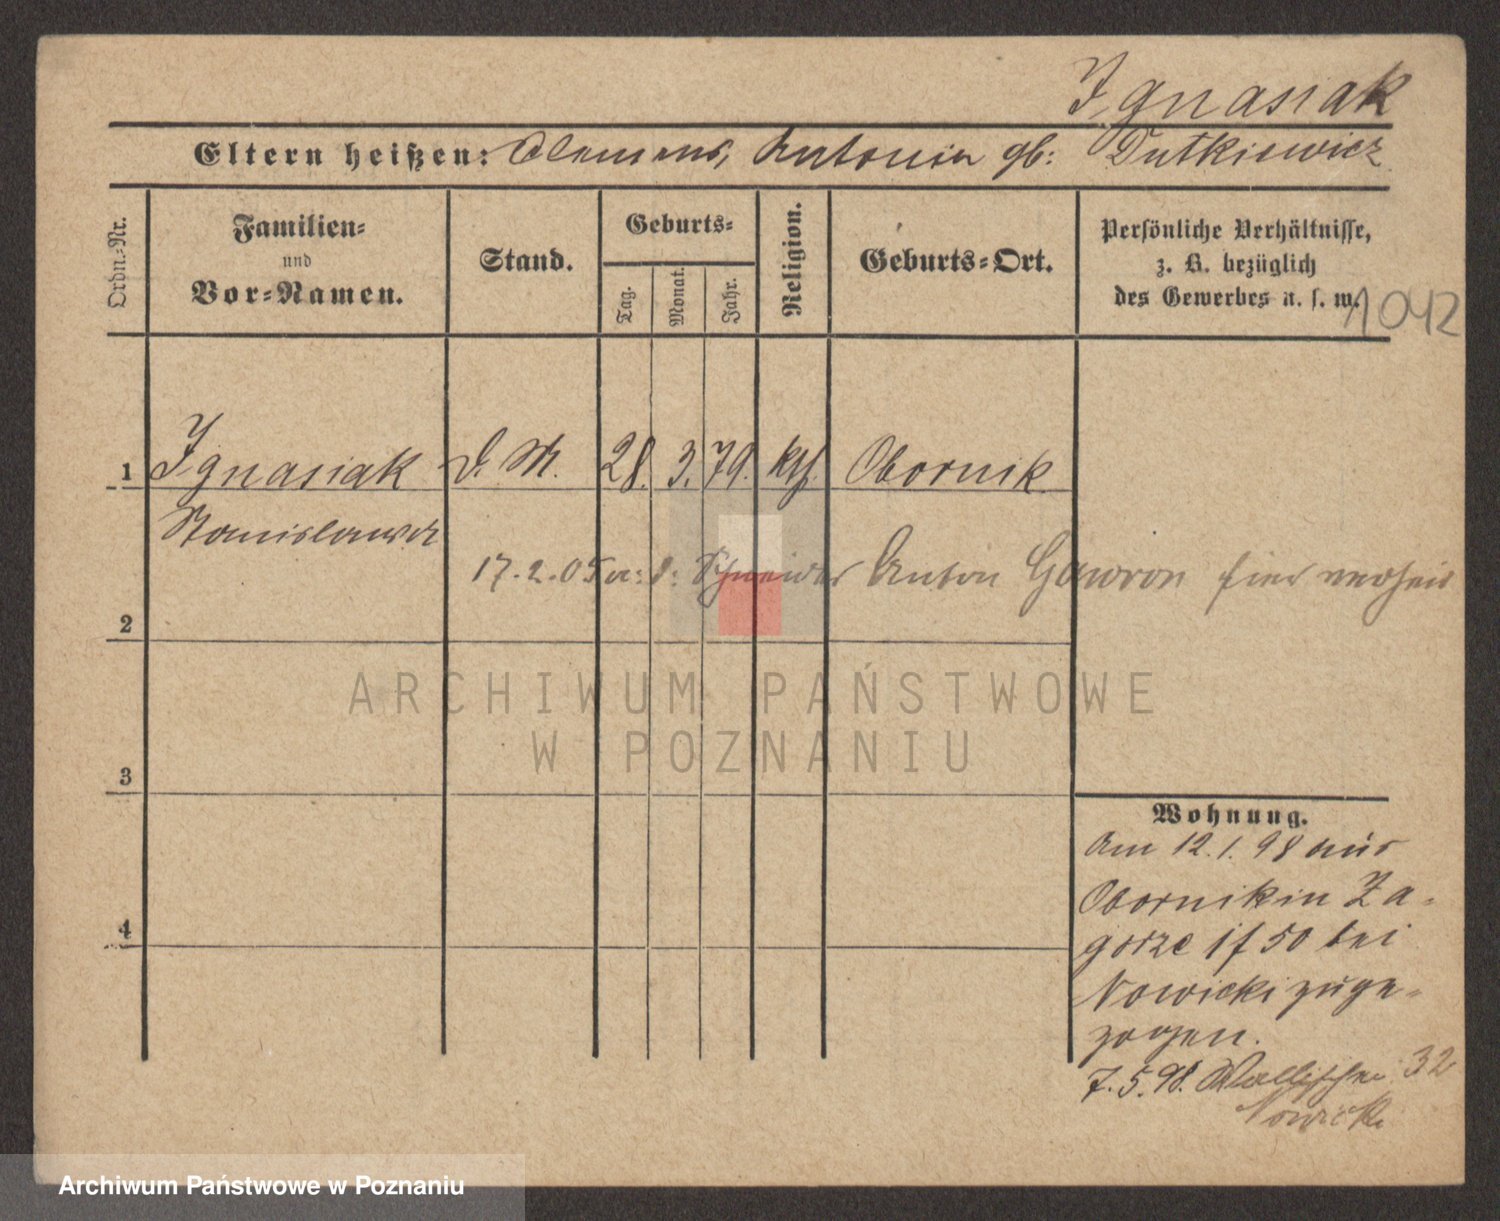 Ignasiak
Eltern heißen: Clemens, Antonia gb: Dutkiewicz
Ordn.-Nr.
Familien-
und
Vor-Namen.
Stand.
Geburts-
Tag.
Monat.
Jahr.
Religion.
Geburts-Ort.
Persönliche Verhältnisse,
z. B. bezüglich
des Gewerbes u. s. w.
1042
1 Ignasiak d. M. 28. 3. 79. kth. Obornik
Stanislawa
17.2.05 Schneider Anton Gawron hier verheir
2
ARCHIWUM PAŃSTWOWE
W POZNANIU
3
Wohnung.
Am 12.1.98 aus
Obornik in Za-
gorze 1f 50 bei
Nowicki zuge-
zogen.
4
7.5.98. Wallischei 32
Nowicki
Archiwum Państwowe w Poznaniu